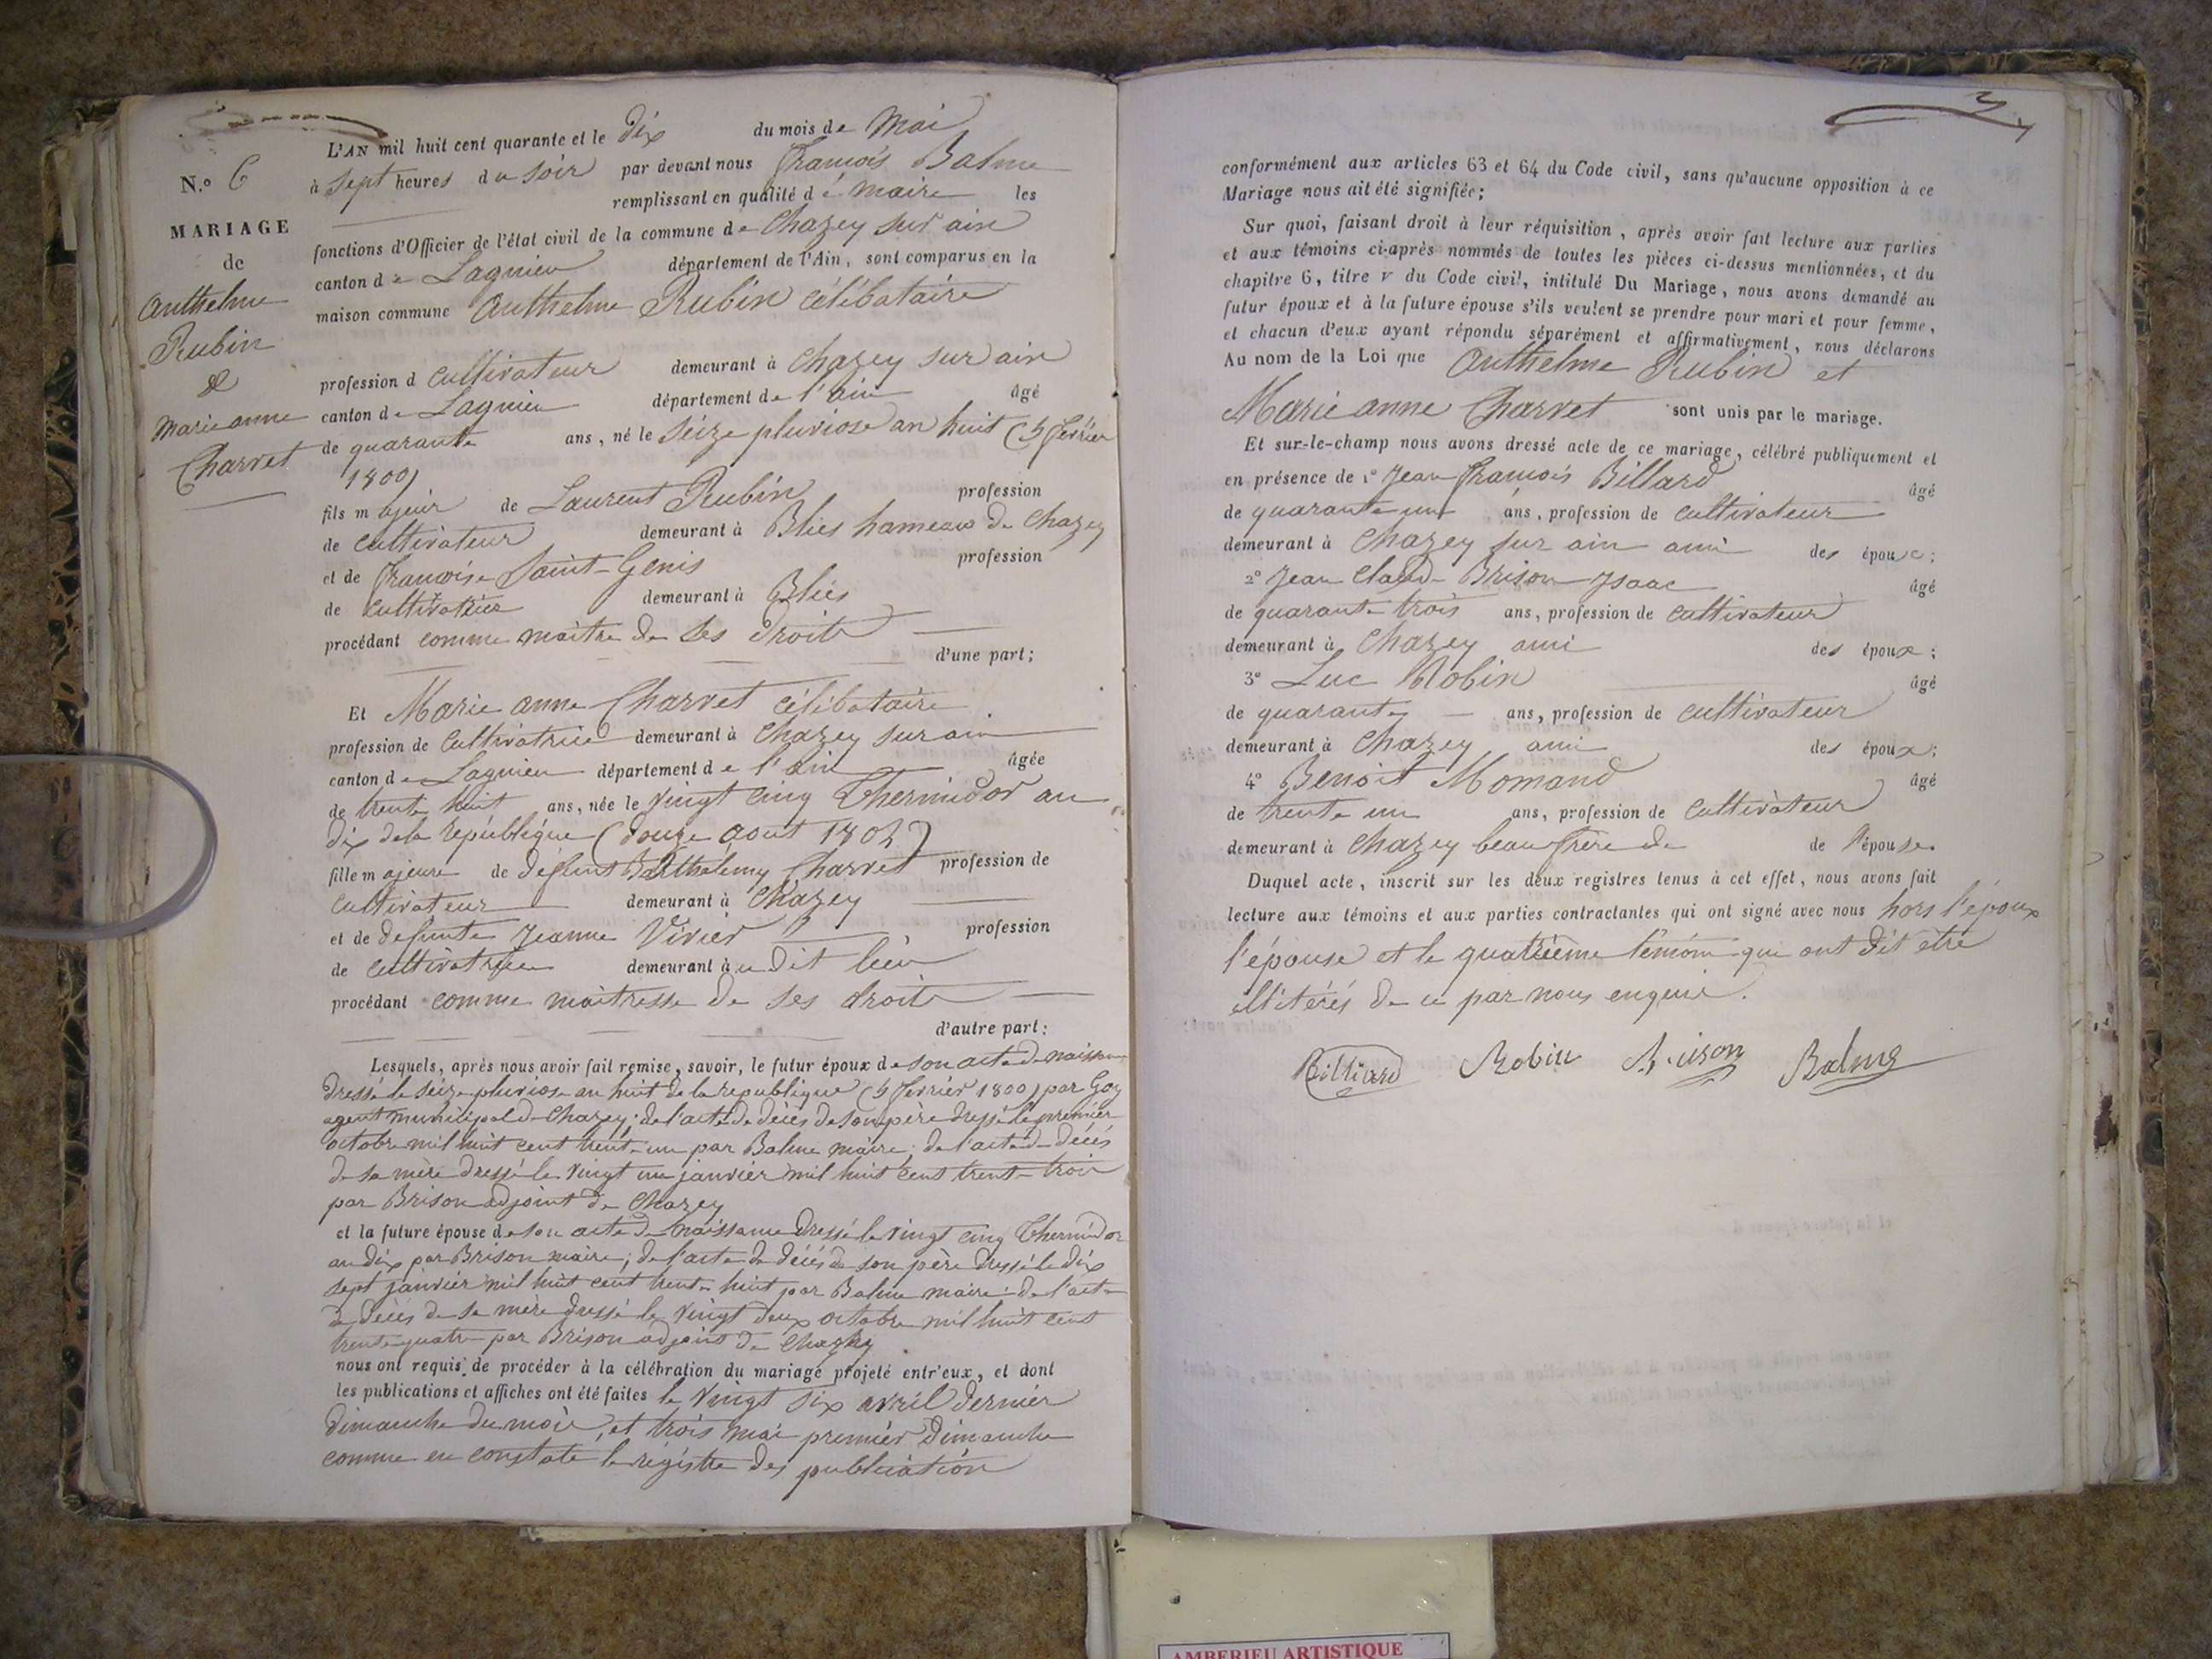 N.º 6
MARIAGE
de
Anthelme
Rubin
&
Marie anne
Charvet
L'AN mil huit cent quarante et le dix du mois de Mai
à sept heures du soir par devant nous François Balme
remplissant en qualité de maire les
fonctions d'Officier de l'état civil de la commune de Chazey sur ain
canton de Lagnieu département de l'Ain, sont comparus en la
maison commune Anthelme Rubin célibataire
profession d cultivateur demeurant à Chazey sur ain
canton de Lagnieu département de l'ain âgé
de quarante ans, né le seize pluviose an huit (5 février
1800)
fils majeur de Laurent Rubin profession
de cultivateur demeurant à Blies hameau de Chazey
et de françoise Saint-Genis profession
de cultivatrice demeurant à Blies
procédant comme maitre de ses droits
d'une part;
Et Marie anne Charvet célibataire
profession de cultivatrice demeurant à Chazey sur ain
canton de Lagnieu département de l'ain âgée
de trente huit ans, née le vingt cinq Thermidor an
dix de la république (douze aout 1802)
fille majeure de défunt Barthélemy Charvet profession de
cultivateur demeurant à Chazey
et de defunte Jeanne Vivier profession
de cultivatrice demeurant au dit lieu
procédant comme maitresse de ses droits
d'autre part:
Lesquels, après nous avoir fait remise, savoir, le futur époux de son acte de naissance
dressé le seize pluviose an huit de la republique (5 février 1800) par Goy
agent municipal de Chazey; de l'acte de décés de son père dressé le premier
octobre mil huit cent trente un par Balme maire; de l'acte de décés
de sa mère dressé le vingt un janvier mil huit cent trente trois
par Brison adjoint de Chazey
et la future épouse de son acte de naissance dressé le vingt cinq Thermidor
an dix par Brison maire; de l'acte de décés de son père dressé le dix
sept janvier mil huit cent trente huit par Balme maire: de l'acte
de décés de sa mère dressé le vingt deux octobre mil huit cent
trente quatre par Brison adjoint de Chazey
nous ont requis de procéder à la célébration du mariage projeté entr'eux, et dont
les publications et affiches ont été faites le vingt six avril dernier
dimanche du mois, et trois mai premier dimanche
comme en constate le régistre des publication
conformément aux articles 63 et 64 du Code civil, sans qu'aucune opposition à ce
Mariage nous ait été signifiée;
Sur quoi, faisant droit à leur réquisition, après avoir fait lecture aux parties
et aux témoins ci-après nommés de toutes les pièces ci-dessus mentionnées, et du
chapitre 6, titre V du Code civil, intitulé Du Mariage, nous avons demandé au
futur époux et à la future épouse s'ils veulent se prendre pour mari et pour femme,
et chacun d'eux ayant répondu séparément et affirmativement, nous déclarons
Au nom de la Loi que Anthelme Rubin et
Marie anne Charvet sont unis par le mariage.
Et sur-le-champ nous avons dressé acte de ce mariage, célébré publiquement et
en présence de 1º Jean françois Billard âgé
de quarante un ans, profession de cultivateur
demeurant à Chazey sur ain ami des époux;
2º Jean Claude Brison Isaac âgé
de quarante trois ans, profession de cultivateur
demeurant à Chazey ami des époux;
3º Luc Robin âgé
de quarante ans, profession de cultivateur
demeurant à Chazey ami des époux;
4º Benoit Momand âgé
de trente un ans, profession de cultivateur
demeurant à Chazey beau frère de de l'épouse
Duquel acte, inscrit sur les deux registres tenus à cet effet, nous avons fait
lecture aux témoins et aux parties contractantes qui ont signé avec nous hors l'époux
l'épouse et le quatrième témoin qui ont dit être
illitérés de ce par nous enquis.
Billiard Robin Brison Balme
AMBERIEU ARTISTIQUE